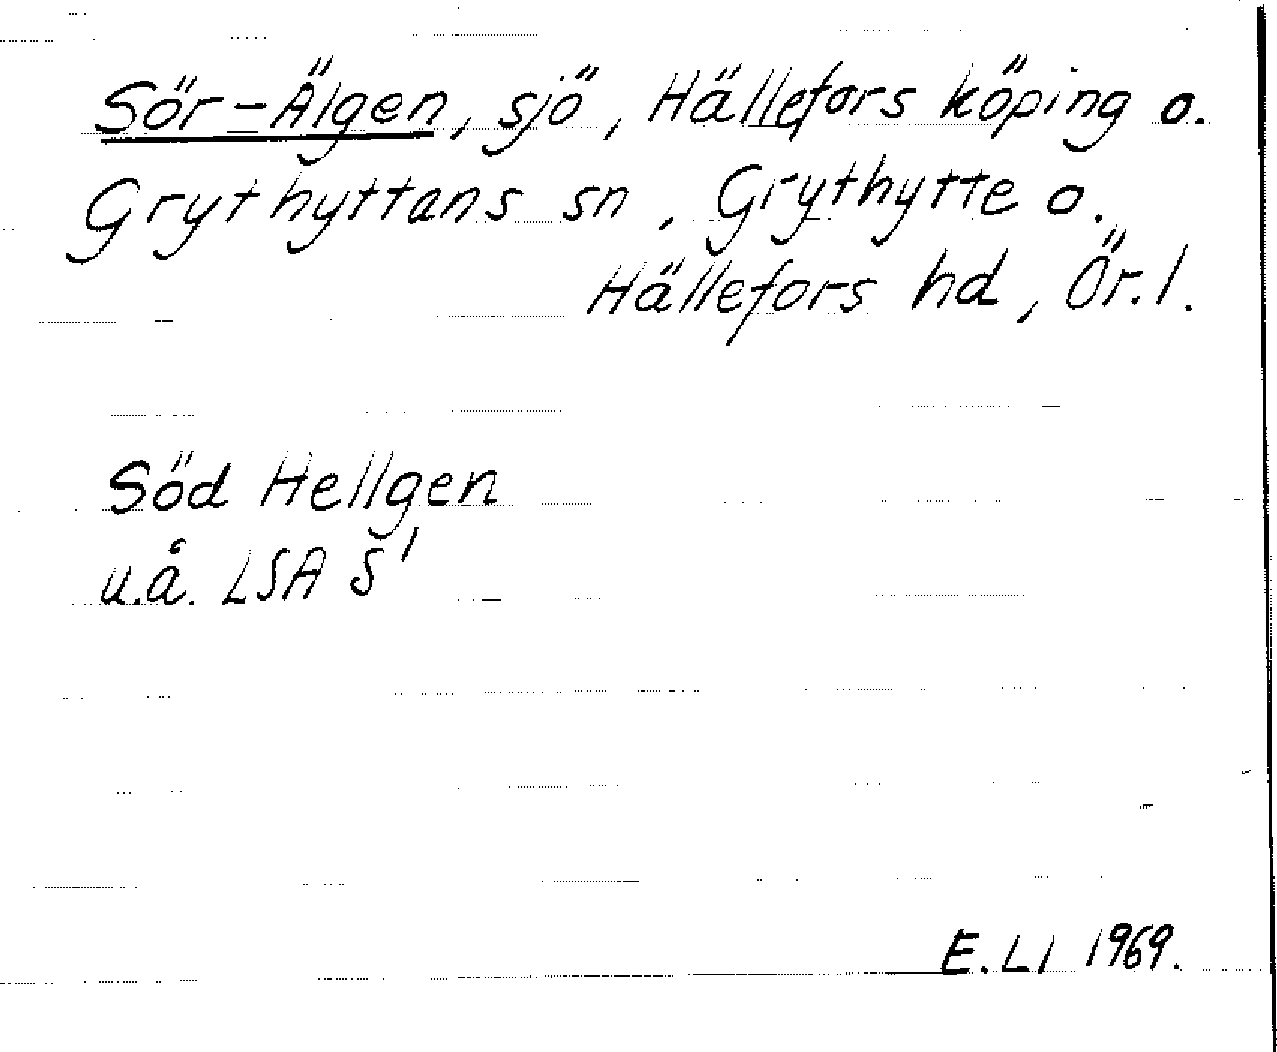 Sör-Älgen, sjö, Hällefors köping o.
Grythyttans sn, Grythytte o.
Hällefors hd, Ör.l.
Söd Hellgen
u.å. LSA S¹
E.LI 1969.